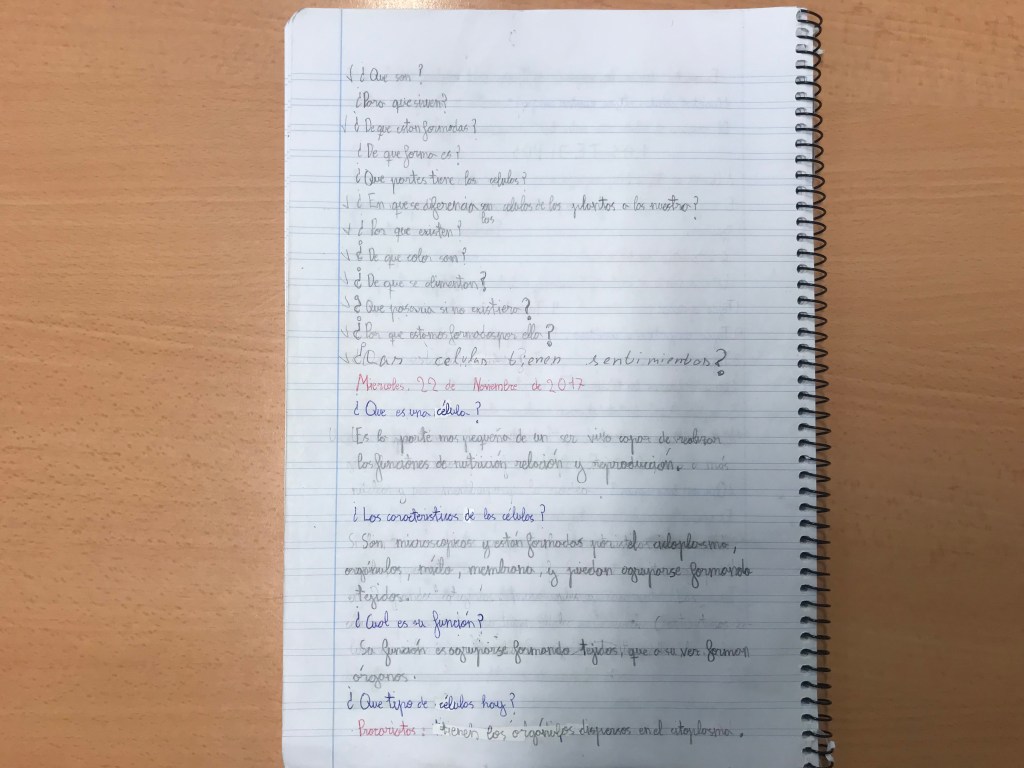 √ ¿Que son?
¿Para que sirven?
√ ¿De que estan formadas?
¿De que forma es?
¿Que partes tiene las celulas?
√ ¿En que se diferencia las celulas de las plantas a la nuestra?
√ ¿Por que existen?
√ ¿De que color son?
√ ¿De que se alimentan?
√ ¿Que pasaria si no existiera?
√ ¿Por que estamos formadas por ella?
√ ¿Las celulas tienen sentimientos?
Miercoles, 22 de Noviembre de 2017
¿Que es una célula?
Es la parte mas pequeña de un ser vivo capaz de realizar
las funciónes de nutrición, relación y reproducción.
¿Las caracteristicas de las células?
Son microscopicas y están formadas por el citoplasma,
orgánulos, membrana, y puedan agruparse formando
tejidos.
¿Cual es su función?
Su función es agruparse formando tejidos, que a su vez forman
órganos.
¿Que tipo de células hay?
Procariotas: tienen los orgánulos dispersos en el citoplasma.